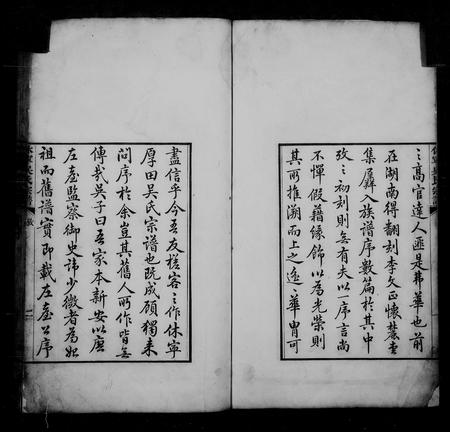 之高官達人匪是弗華也前
在湖南得翻刻李文正懷麓堂
集羼入族譜序數篇於其中
攷之初刻則無有夫以一序言尚
不憚假藉緣飾以為光榮則
其所推溯而上之遠之華胄可
盡信乎今吾友槎客之作休寧
厚田吳氏宗譜也既成碩獨來
問序於余豈其舊人所作皆無
傳哉吳子曰吾家本新安以唐
左臺監察御史諱少微者為始
祖而舊譜實即載左臺公序